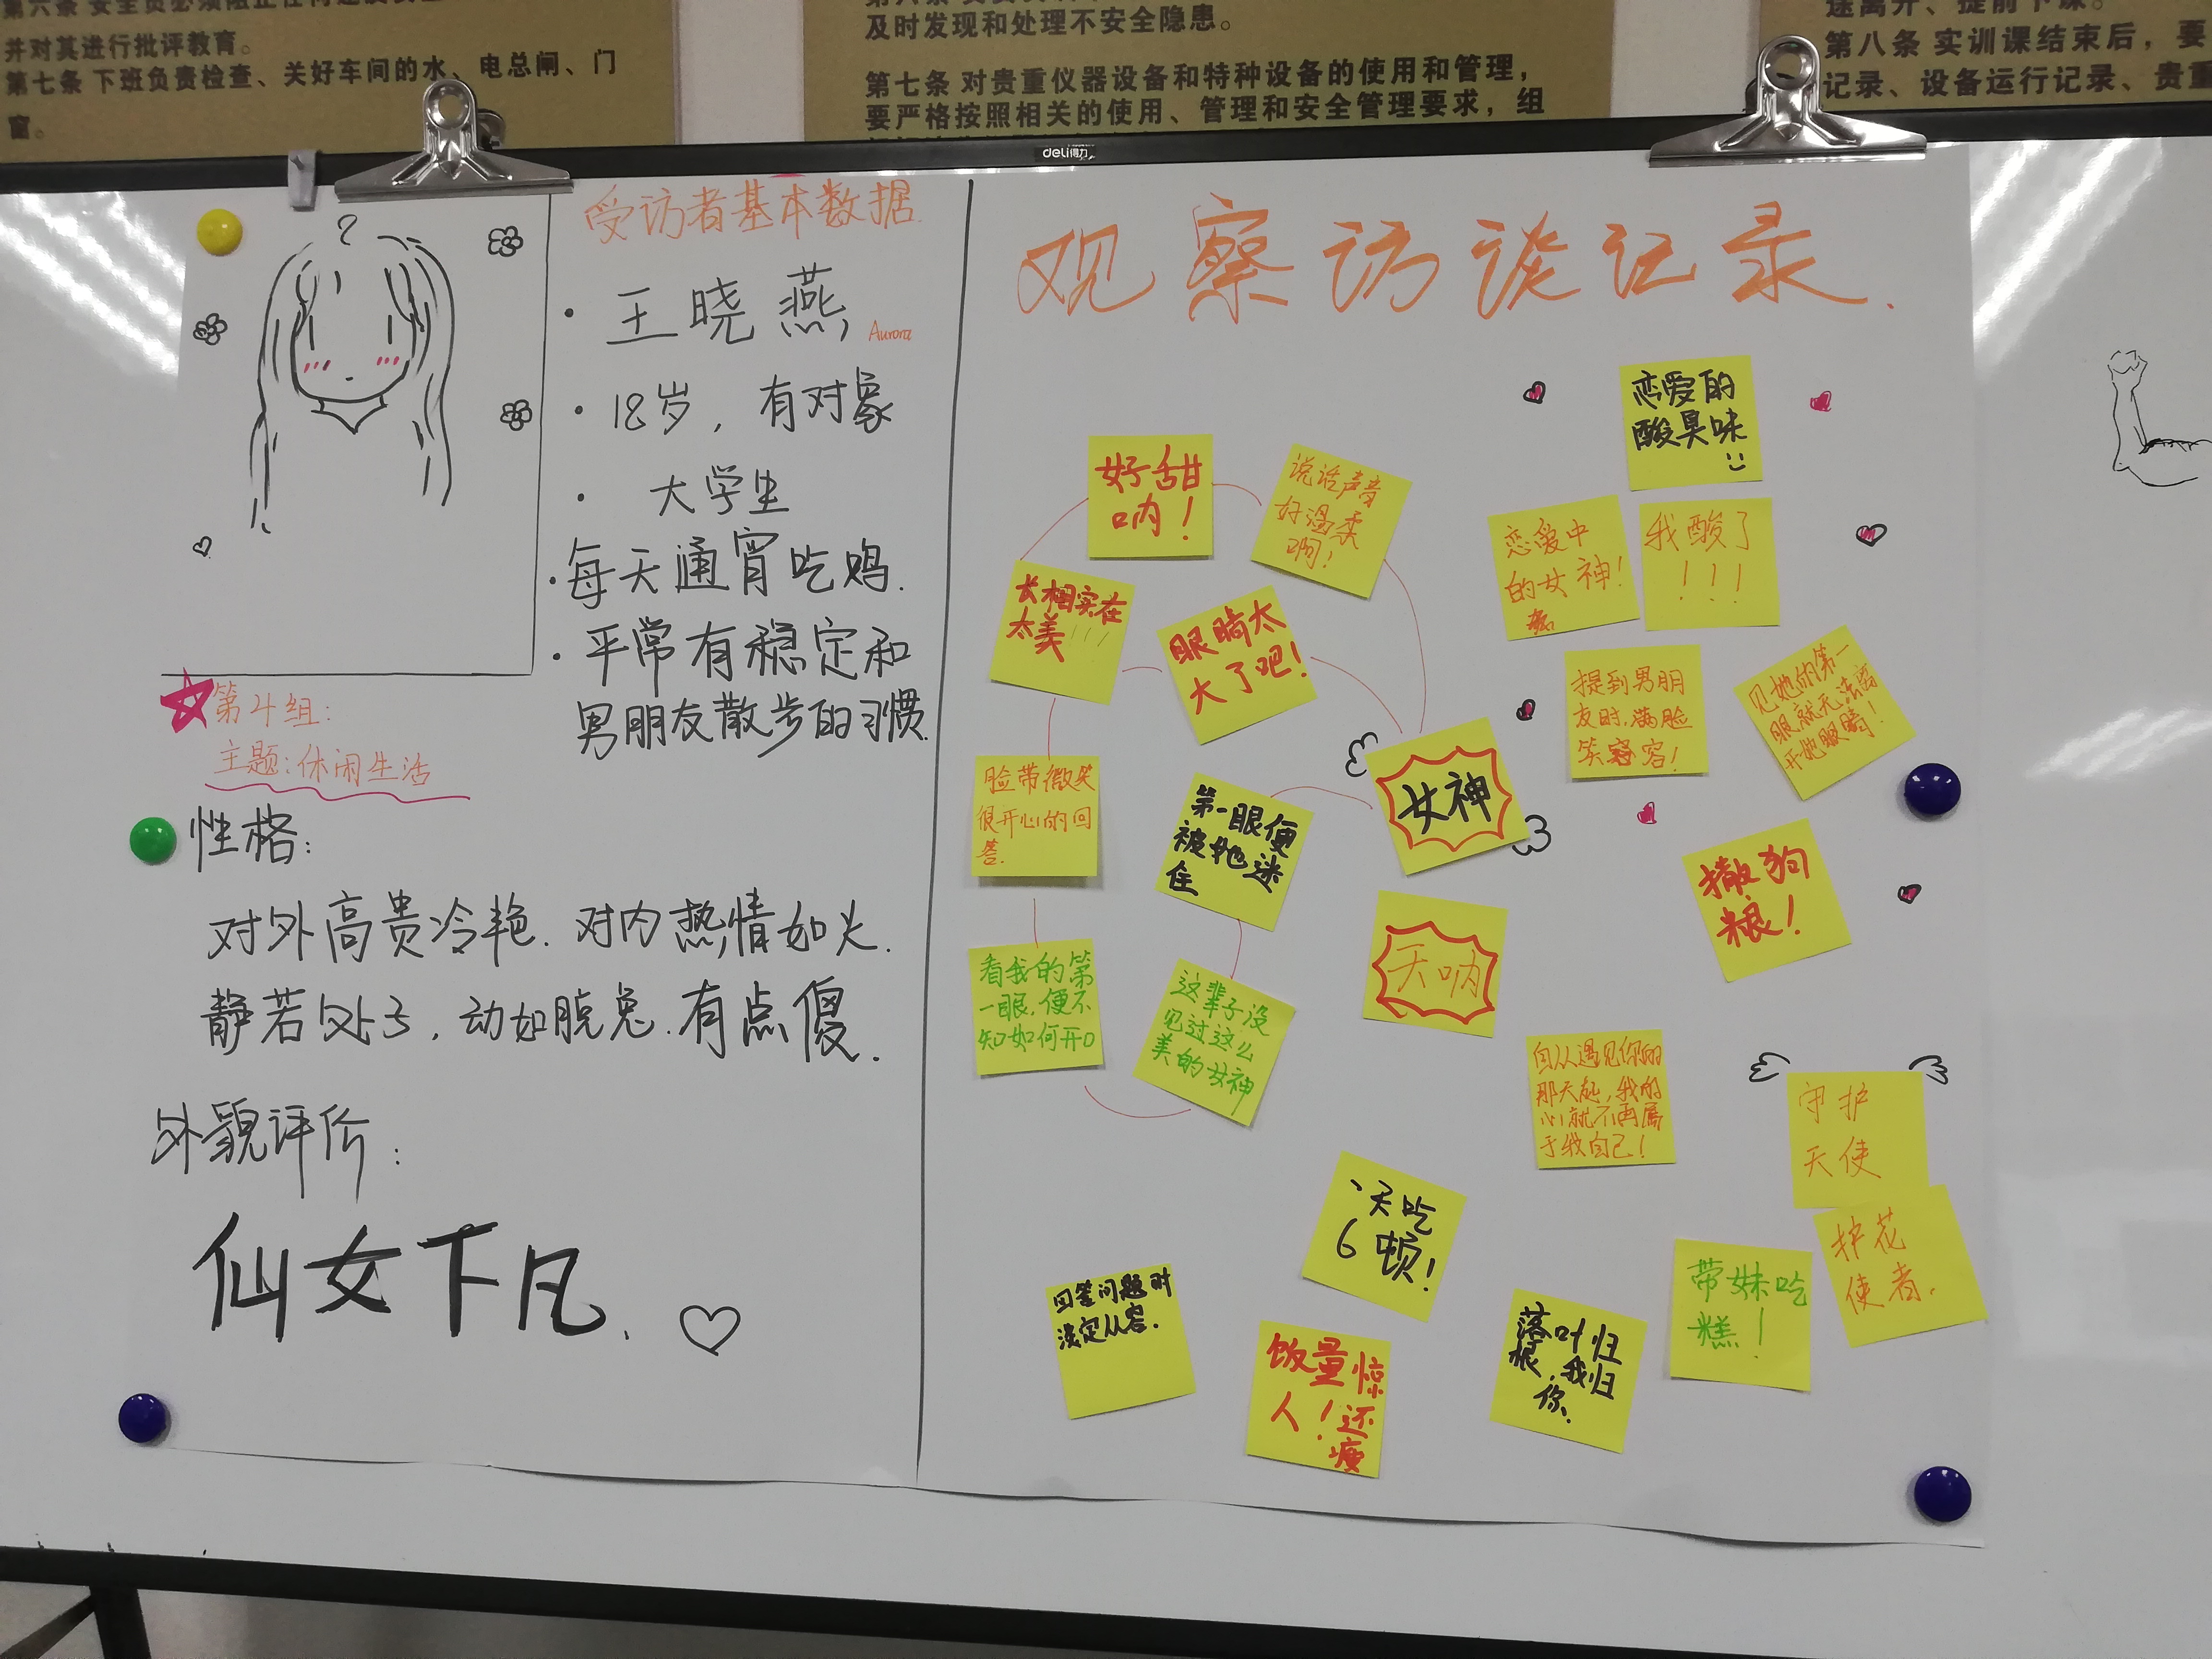 并对其进行批评教育。
第七条 下班负责检查、关好车间的水、电总闸、门
窗。
及时发现和处理不安全隐患。
第七条 对贵重仪器设备和特种设备的使用和管理，
要严格按照相关的使用、管理和安全管理要求，组
途离开、提前下课。
第八条 实训课结束后，要
记录、设备运行记录、贵重
deli得力
受访者基本数据.
· 王晓燕, Aurora
· 18岁，有对象
· 大学生
· 每天通宵吃鸡.
· 平常有稳定和
男朋友散步的习惯.
第4组:
主题:休闲生活
性格:
对外高贵冷艳. 对内热情如火.
静若处子, 动如脱兔. 有点傻.
外貌评价:
仙女下凡.
观察访谈记录.
好甜
呐!
说话声音
好温柔
啊!
长相实在
太美!!!
眼睛太
大了吧!
脸带微笑
很开心的回
答.
第一眼便
被她迷
住
女神
看我的第
一眼,便不
知如何开口
这辈子没
见过这么
美的女神
天呐
恋爱的
酸臭味
恋爱中
的女神!
我酸了
!!!
提到男朋
友时,满脸
笑容!
见她的第一
眼就无法离
开她眼睛!
撒狗
粮!
自从遇见你的
那天起,我的
心就不再属
于我自己!
守护
天使
护花
使者.
一天吃
6顿!
回答问题时
淡定从容.
饭量惊
人!还
瘦
落叶归
根,我归
你.
带妹吃
糕!